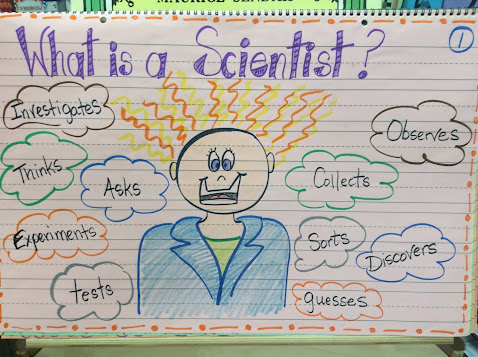 MAURICE SENDAK
What is a Scientist?
1
Investigates
Observes
Thinks
Asks
Collects
Experiments
Sorts
Discovers
tests
guesses